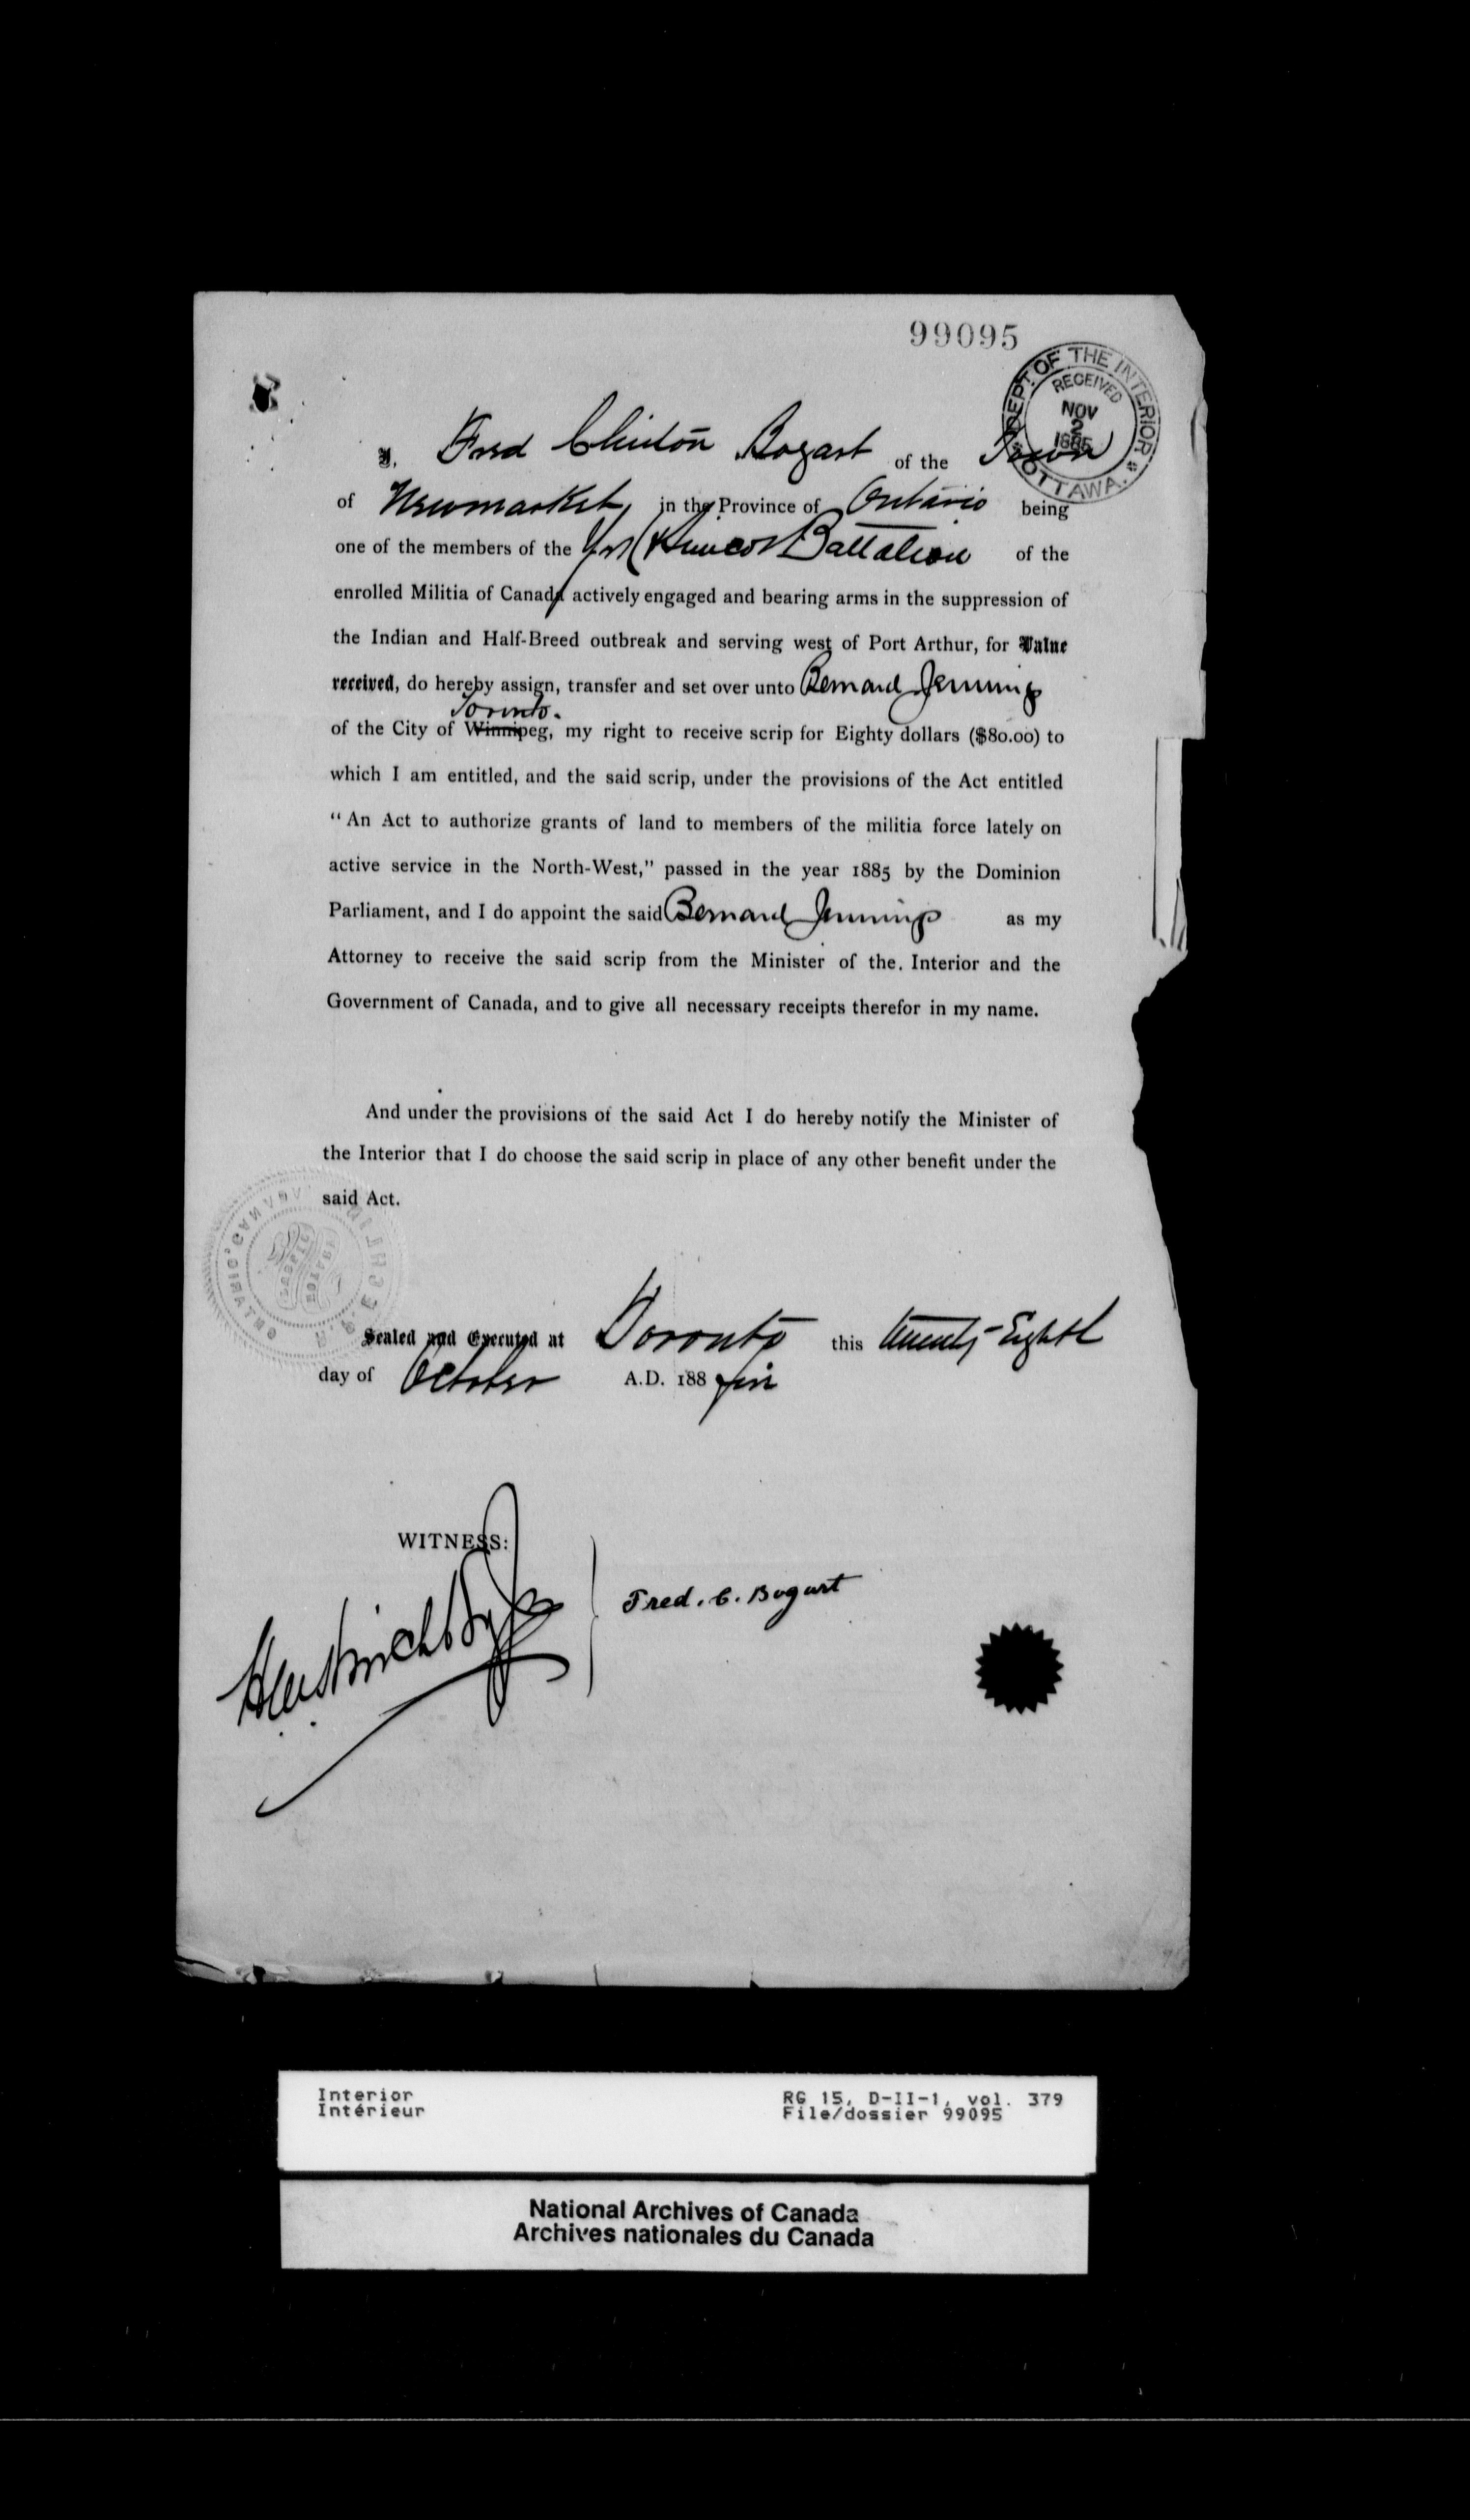 99095
DEPT. OF THE INTERIOR
RECEIVED
NOV
2
1885
OTTAWA.
I, Fred Clinton Bogart of the Town
of Newmarket, in the Province of Ontario being
one of the members of the York Simcoe Battalion of the
enrolled Militia of Canada actively engaged and bearing arms in the suppression of
the Indian and Half-Breed outbreak and serving west of Port Arthur, for Value
received, do hereby assign, transfer and set over unto Bernard Jennings
Toronto.
of the City of Winnipeg, my right to receive scrip for Eighty dollars ($80.00) to
which I am entitled, and the said scrip, under the provisions of the Act entitled
“An Act to authorize grants of land to members of the militia force lately on
active service in the North-West,” passed in the year 1885 by the Dominion
Parliament, and I do appoint the said Bernard Jennings as my
Attorney to receive the said scrip from the Minister of the. Interior and the
Government of Canada, and to give all necessary receipts therefor in my name.
And under the provisions of the said Act I do hereby notify the Minister of
the Interior that I do choose the said scrip in place of any other benefit under the
said Act.
Sealed and Executed at Toronto this twenty-Eighth
day of October A.D. 188 five
WITNESS:
Fred. C. Bogart
Interior
Intérieur
RG 15, D-II-1, vol. 379
File/dossier 99095
National Archives of Canada
Archives nationales du Canada